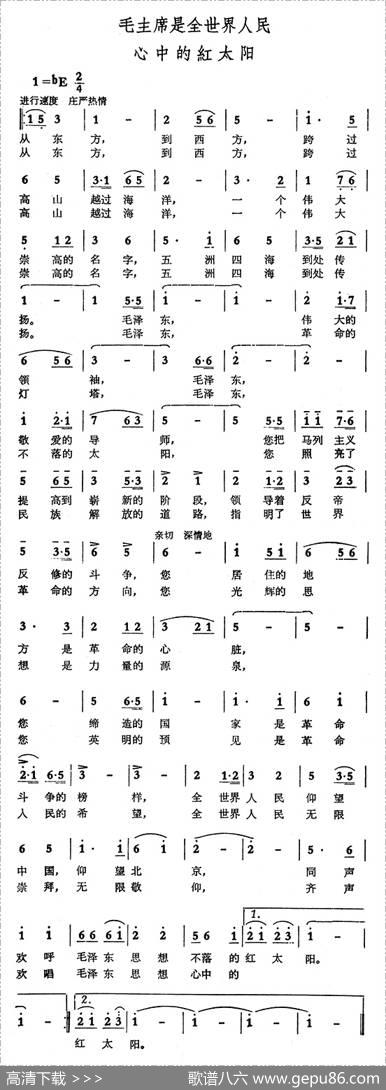 毛主席是全世界人民
心中的紅太阳
1=bE 2/4
进行速度 庄严热情
从东方，到西方，跨过
从东方，到西方，跨过
高山越过海洋，一个伟大
高山越过海洋，一个伟大
崇高的名字，五洲四海到处传
崇高的名字，五洲四海到处传
扬。毛泽东，伟大的
扬。毛泽东，革命的
领袖，毛泽东，
灯塔，毛泽东，
敬爱的导师，您把马列主义
不落的太阳，您照亮了
提高到崭新的阶段，领导着反帝
民族解放的道路，指明了世界
亲切 深情地
反修的斗争，您居住的地
革命的方向，您光辉的思
方是革命的心脏，
想是力量的源泉，
您缔造的国家是革命
您英明的预见是革命
斗争的榜样，全世界人民仰望
人民的希望，全世界人民无限
中国，仰望北京，同声
崇拜，无限敬仰，齐声
1.
欢呼毛泽东思想不落的红太阳。
欢唱毛泽东思想心中的
2.
红太阳。
高清下载 >>>
歌谱八六 www.gepu86.com